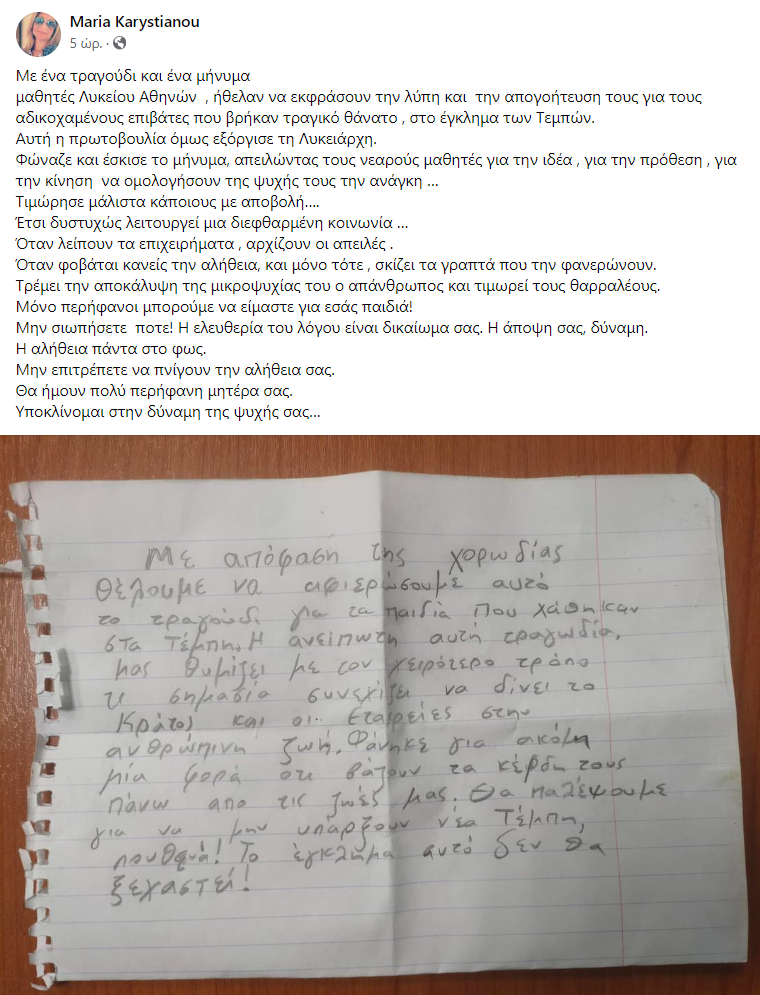 Maria Karystianou
5 ώρ. ·
Με ένα τραγούδι και ένα μήνυμα
μαθητές Λυκείου Αθηνών , ήθελαν να εκφράσουν την λύπη και την απογοήτευση τους για τους
αδικοχαμένους επιβάτες που βρήκαν τραγικό θάνατο , στο έγκλημα των Τεμπών.
Αυτή η πρωτοβουλία όμως εξόργισε τη Λυκειάρχη.
Φώναζε και έσκισε το μήνυμα, απειλώντας τους νεαρούς μαθητές για την ιδέα , για την πρόθεση , για
την κίνηση να ομολογήσουν της ψυχής τους την ανάγκη ...
Τιμώρησε μάλιστα κάποιους με αποβολή....
Έτσι δυστυχώς λειτουργεί μια διεφθαρμένη κοινωνία ...
Όταν λείπουν τα επιχειρήματα , αρχίζουν οι απειλές .
Όταν φοβάται κανείς την αλήθεια, και μόνο τότε , σκίζει τα γραπτά που την φανερώνουν.
Τρέμει την αποκάλυψη της μικροψυχίας του ο απάνθρωπος και τιμωρεί τους θαρραλέους.
Μόνο περήφανοι μπορούμε να είμαστε για εσάς παιδιά!
Μην σιωπήσετε ποτε! Η ελευθερία του λόγου είναι δικαίωμα σας. Η άποψη σας, δύναμη.
Η αλήθεια πάντα στο φως.
Μην επιτρέπετε να πνίγουν την αλήθεια σας.
Θα ήμουν πολύ περήφανη μητέρα σας.
Υποκλίνομαι στην δύναμη της ψυχής σας...
Με απόφαση της χορωδίας
θέλουμε να αφιερώσουμε αυτό
το τραγούδι για τα παιδιά που χάθηκαν
στα Τέμπη. Η ανείπωτη αυτή τραγωδία,
μας θυμίζει με τον χειρότερο τρόπο
τι σημασία συνεχίζει να δίνει το
Κράτος και οι.. Εταιρείες στην
ανθρώπινη ζωή. Φάνηκε για ακόμη
μία φορά ότι βάζουν τα κέρδη τους
πάνω απο τις ζωές μας. Θα παλέψουμε
για να μην υπάρξουν νέα Τέμπη,
πουθενά! Το έγκλημα αυτό δεν θα
ξεχαστεί!